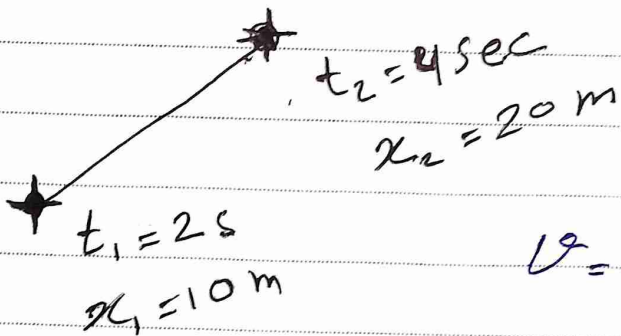 t₂ = 4 sec
x₂ = 20 m
t₁ = 2 s
x₁ = 10 m
v =